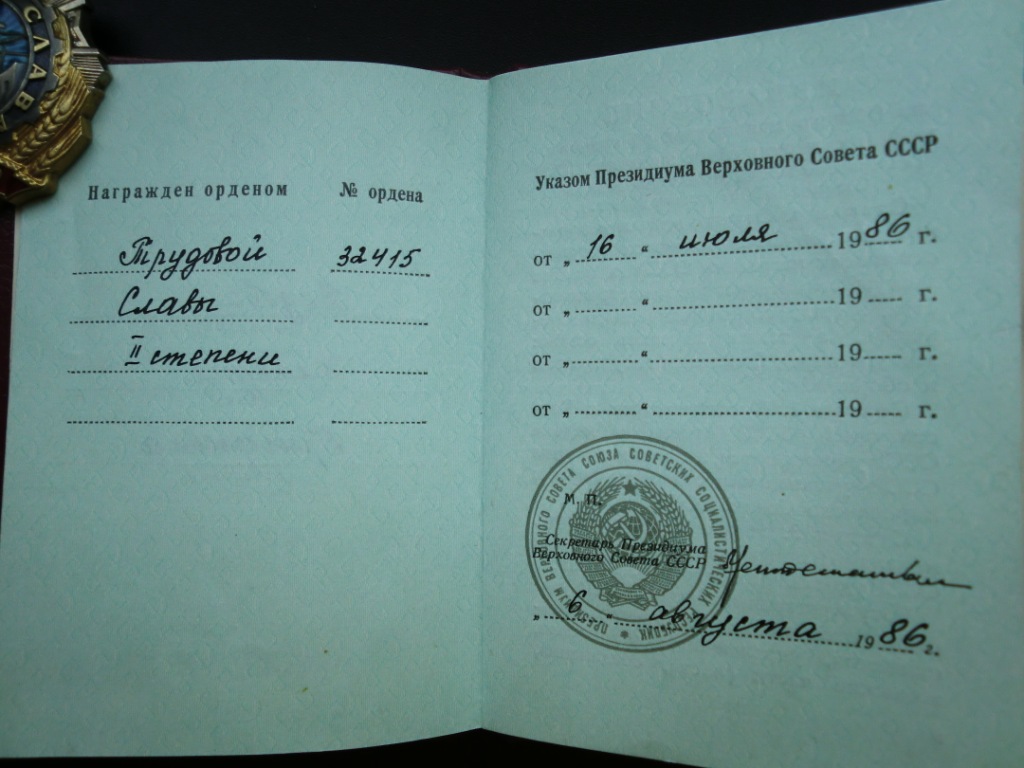 СЛАВА
Награжден орденом № ордена
Трудовой 32415
Славы
II степени
Указом Президиума Верховного Совета СССР
от „16“ июля 1986 г.
от „ “ 19 г.
от „ “ 19 г.
от „ “ 19 г.
ПРЕЗИДИУМ ВЕРХОВНОГО СОВЕТА СОЮЗА СОВЕТСКИХ СОЦИАЛИСТИЧЕСКИХ РЕСПУБЛИК
М. П.
Секретарь Президиума
Верховного Совета СССР
„6“ августа 1986 г.